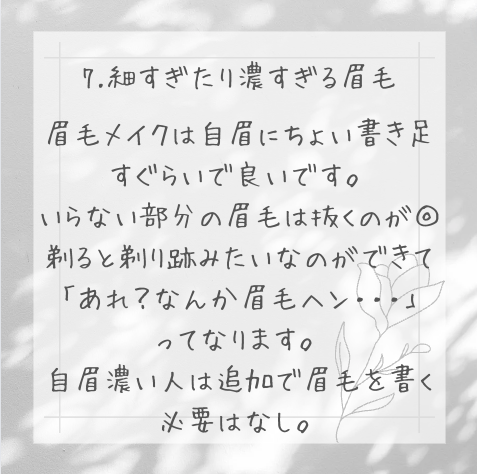 7.細すぎたり濃すぎる眉毛
眉毛メイクは自眉にちょい書き足
すぐらいで良いです。
いらない部分の眉毛は抜くのが◎
剃ると剃り跡みたいなのができて
「あれ?なんか眉毛ヘン・・・」
ってなります。
自眉濃い人は追加で眉毛を書く
必要はなし。